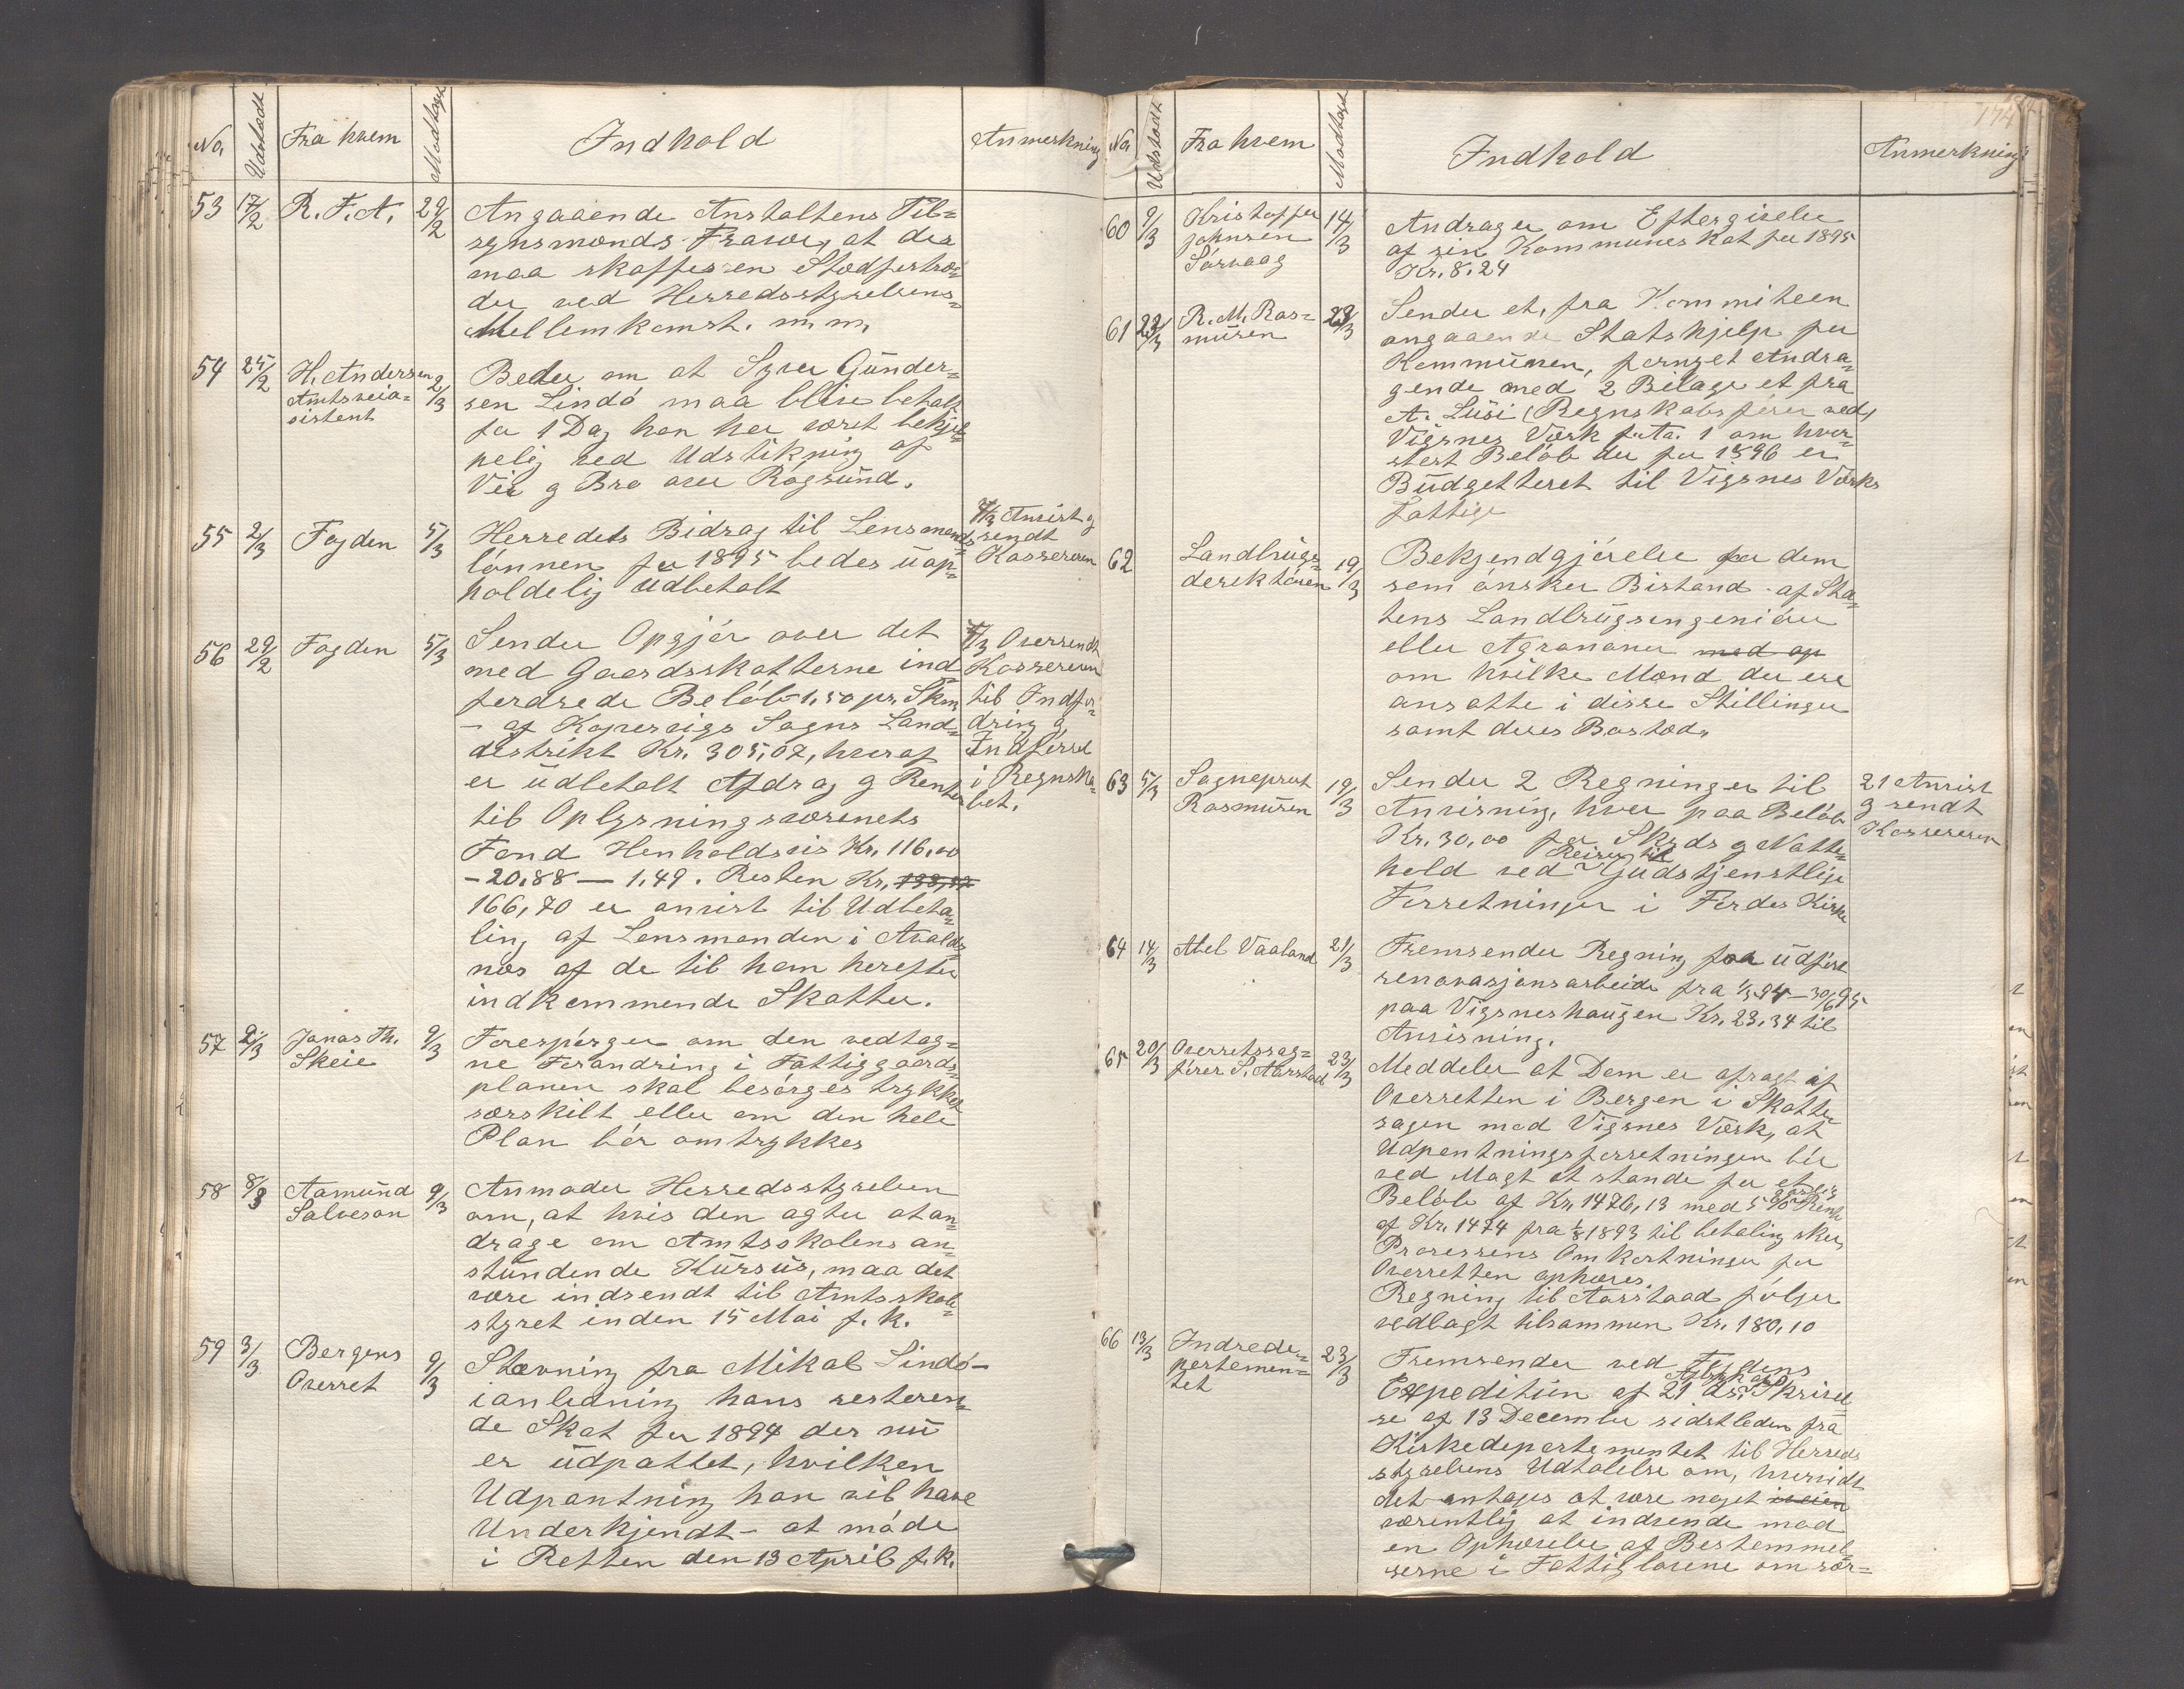 No. Udstædt Fra hvem Modtaget Indhold Anmerkning
53 17/2 R. F. A. 29/2 Angaaende Anstaltens Til=
synsmænds Fravær, at der
maa skaffes en Stedfortræ=
der ved Herredsstyrelsens
Mellemkomst. m. m.
54 25/2 H. Andersen 2/3 Beder om at Syver Gunder=
Amtsveia= sen Lindö maa blive betalt
sistent for 1 Dag han har været behjæl=
pelig ved Udstikning af
Vei g Bro over Røgsund.
55 2/3 Fogden 5/3 Herredets Bidrag til Lensmands
lönnen for 1895 bedes uop=
holdelig udbetalt
7/3 Anvist g
sendt
Kassereren
56 29/2 Fogden 5/3 Sender Opgjör over det
med Gaardsskatterne ind=
fordrede Belöb 1,50 pr. Skm
- af Kopervigs Sogns Land=
distrikt Kr. 305,07, hvoraf
er udbetalt Afdrag g Renter
til Oplysningsvæsenets
Fond Henholdsvis Kr. 116,00
- 20.88 - 1.49. Resten Kr.
166,70 er anvist til Udbeta=
ling af Lensmanden i Avalds=
nes af de til ham herefter
indkommende Skatter.
7/3 Oversendt
Kassereren
til Indfor=
dring g
Indførsel
i Regnska=
bet.
57 2/3 Jonas Th. 9/3 Forespörger om den vedtag=
Skeie ne Forandring i Fattiggaards=
planen skal besörges trykket
særskilt eller om den hele
Plan bör omtrykkes
58 8/3 Aamund 9/3 Anmoder Herredsstyrelsen
Salveson om, at hvis den agter at an=
drage om Amtsskolens an=
stundende Kursus, maa det
være indsendt til Amtsskole=
styret inden 15 Mai f. k.
59 3/3 Bergens 9/3 Stævning fra Mikal Lindö -
Overret i anledning hans resteren=
de Skat for 1894 der nu
er udpattet, hvilken
Udpantning han vil have
Underkjendt - at møde
i Retten den 13 April f. k.
No. Udstædt Fra hvem Modtaget Indhold Anmerkning
174
60 9/3 Kristoffer 14/3 Andrager om Eftergivelse
Johnsen af sin Kommuneskat for 1895
Sörvaag Kr. 8.24
61 22/3 R. M. Ras= 23/3 Sender et, fra Komiteen
musen angaaende Statshjelp for
Kommunen, fornyet Andra=
gende med 2 Bilage et fra
A. Lusi (Regnskabsförer ved
Vigsnes Værk f.Ta. 1 om hvor=
stort Belöb der for 1896 er
Budgetteret til Vigsnes Værks
Fattige
62 Landbrugs= 19/3 Bekjendgjörelse for dem
derektören som önsker Bistand af Sta=
tens Landbrugsingeniöer
eller Agronomer med op
om hvilke Mænd der ere
ansatte i disse Stillinger
samt deres Bosted.
63 5/3 Sogneprest 19/3 Sender 2 Regninger til
Rasmusen Anvisning, hver paa Belöb
Kr. 30,00 for Skyds g Natte=
hold ved Reiser til Gudstjenstlige
Forretninger i Ferdes Kirke
21 Anvist
g sendt
Kassereren
64 14/3 Abel Vaaland 21/3 Fremsender Regning for udfört
renovasjonsarbeide fra 1/5 94 - 30/6 95
paa Vigsneshaugen Kr. 23.34 til
Anvisning.
65 20/3 Overretssag= 23/3 Meddeler at Dom er afsagt af
förer S. Aarstad Overretten i Bergen i Skatte=
sagen med Vigsnes Værk, at
Udpantningsforretningen bör
ved Magt at stande for et
Belöb af Kr. 1476,13 med 5 % Rente
af Kr. 1474 fra 1/8 1893 til betaling sker,
Processens Omkostninger for
Overretten ophæves.
Regning til Aarstaad fölger
vedlagt tilsammen Kr. 180,10
66 13/3 Indrede= 23/3 Fremsender ved Fogdens
partemen= Expeditiun af 21 ds. Afskrift Skrivel=
tet se af 13 December sidstleden fra
Kirkedepartementet til Herreds
styrelsens Udtalelse om, hvorvidt
det antages at være noget iveien
væsentlig at indvende mod
en Ophævelse af Bestemmel=
serne i Fattiglovene om sær=